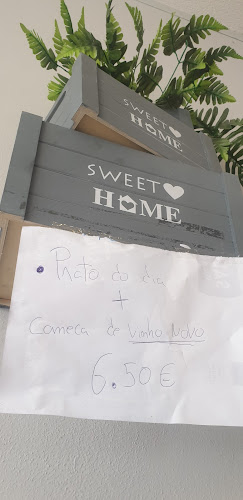 SWEET
HOME
SWEET
HOME
• Prato do dia
+
Caneca de vinho novo
6.50 €